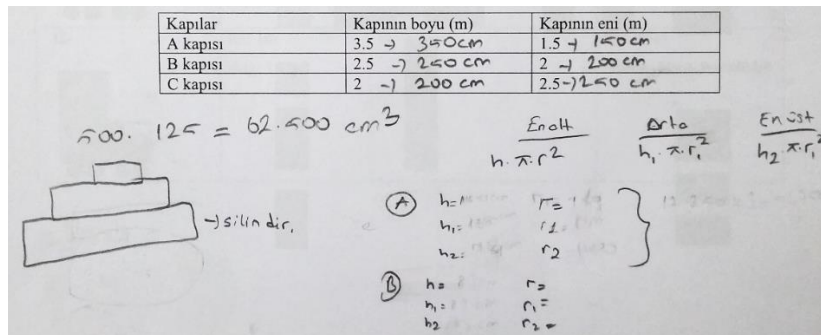 Kapılar Kapının boyu (m) Kapının eni (m)
A kapısı 3.5 → 350cm 1.5 → 150cm
B kapısı 2.5 → 250 cm 2 → 200 cm
C kapısı 2 → 200 cm 2.5 → 250 cm
500. 125 = 62.500 cm³
En alt Orta En üst
h. π. r² h₁. π. r₁² h₂. π. r₁²
→ silindir.
A h= r=
h₁= r₁=
h₂= r₂
B h= r=
h₁= r₁=
h₂ r₂=